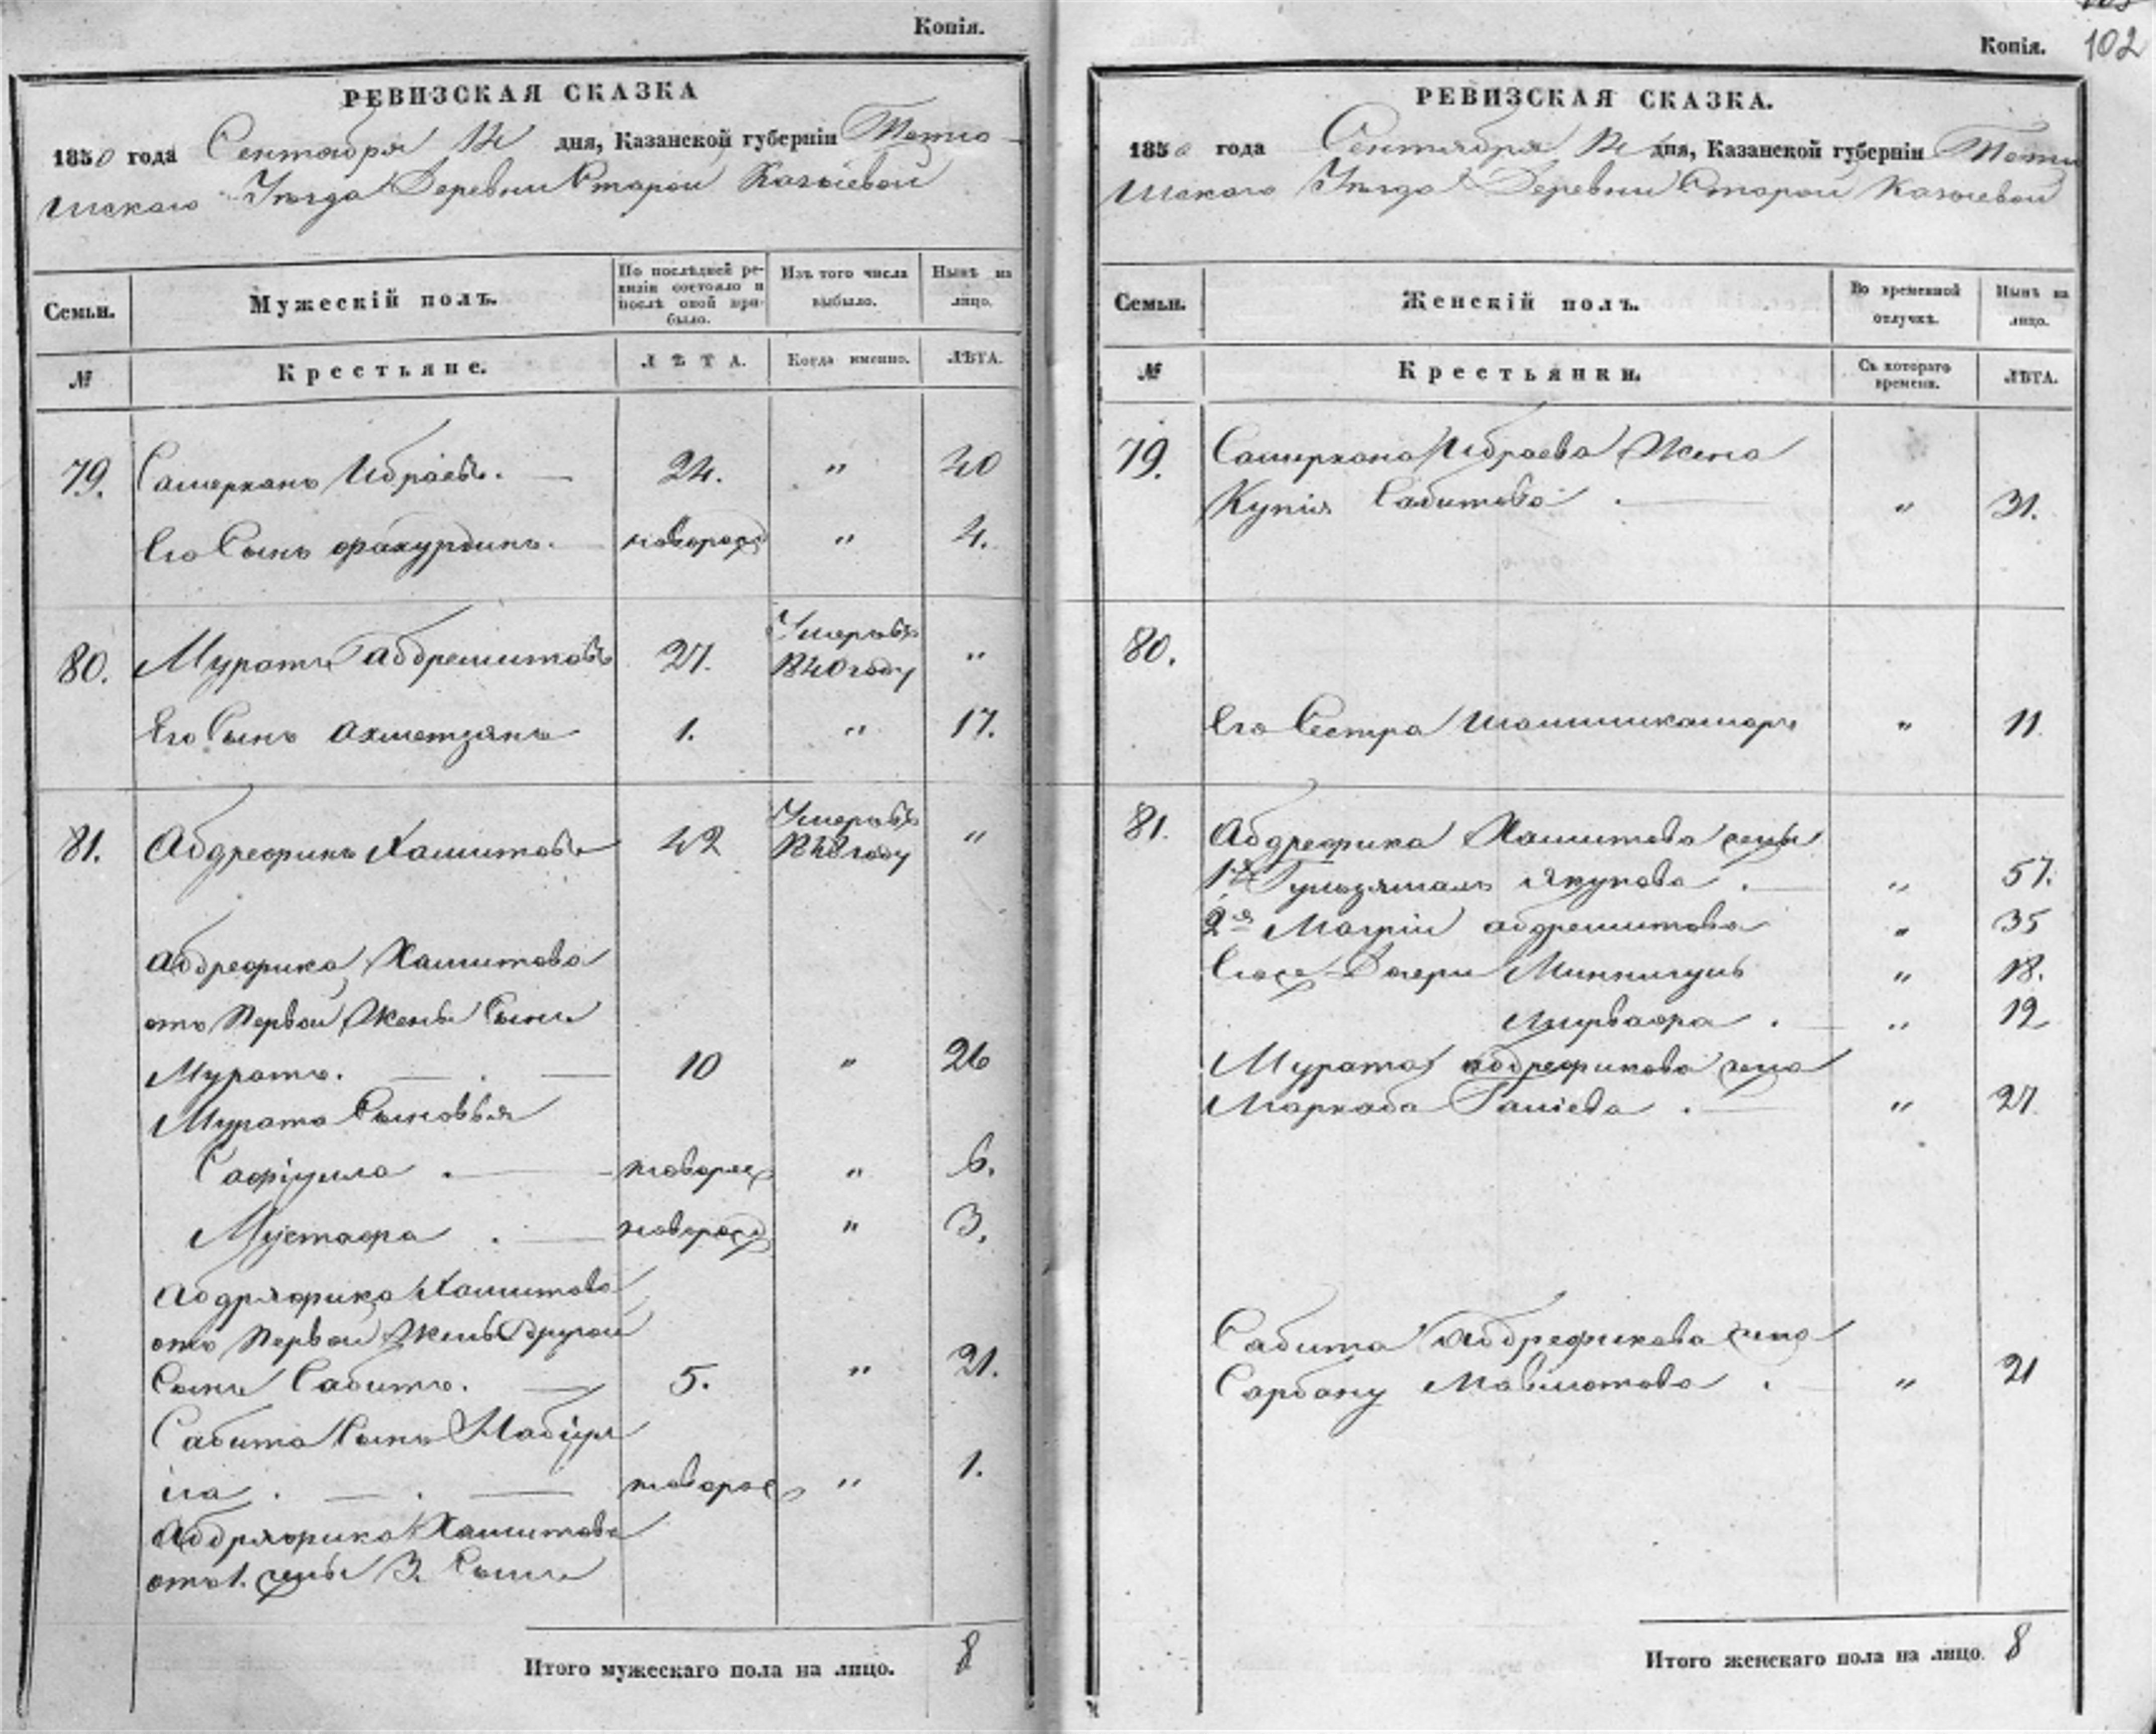 Копія.
РЕВИЗСКАЯ СКАЗКА
1850 года Сентября 12 дня, Казанской губерніи Тетю-
шскаго Уѣзда Деревни Старой Казѣевой
Семьи.
Мужескій полъ.
По послѣдней ре-
визіи состояло и
послѣ оной при-
было.
Изъ того числа
выбыло.
Нынѣ на
лицо.
№
Крестьяне.
ЛѢТА.
Когда именно.
ЛѢТА.
79. Самерханъ Ибраевъ. — 24. " 40
Его Сынъ Фахурдинъ. — новорож " 4.
80. Муратъ Абдрешитовъ 27. Умеръ въ 1840 году "
Его Сынъ Ахметзянъ 1. " 17.
81. Абдрефикъ Хамитовъ 42 Умеръ въ 1848 году "
Абдрефика Хамитова
отъ Первой Жены Сынъ
Муратъ. — 10 " 26
Мурата Сыновья
Сафіулла . — новорож " 6.
Мустафа . — новорож " 3.
Абдряфика Хамитова
отъ Первой Жены Другой
Сынъ Сабитъ. — 5. " 21.
Сабита Сынъ Хабіул
ла . — . — новорож " 1.
Абдряфика Хамитова
отъ 1. жены 3. Сынъ
Итого мужескаго пола на лицо. 8
Копія. 102
РЕВИЗСКАЯ СКАЗКА.
1850 года Сентября 12 дня, Казанской губерніи Тетю
шскаго Уѣзда Деревни Старой Казѣевой
Семьи.
Женскій полъ.
Во временной
отлучкѣ.
Нынѣ на
лицо.
№
Крестьянки.
Съ котораго
времени.
ЛѢТА.
79. Самерхана Ибраева Жена
Сабитова . — " 31.
80.
Его Сестра " 11.
81. Абдрефика Хамитова жены
1я Гульзямаль Якупова . — " 57.
2я Абдрешитова " 35
Дочери Миннигуль " 18.
. — " 12
Мурата Абдрефикова жена
Галіева . — " 27
Сабита Абдрефикова жена
Сарбану . " 21
Итого женскаго пола на лицо. 8